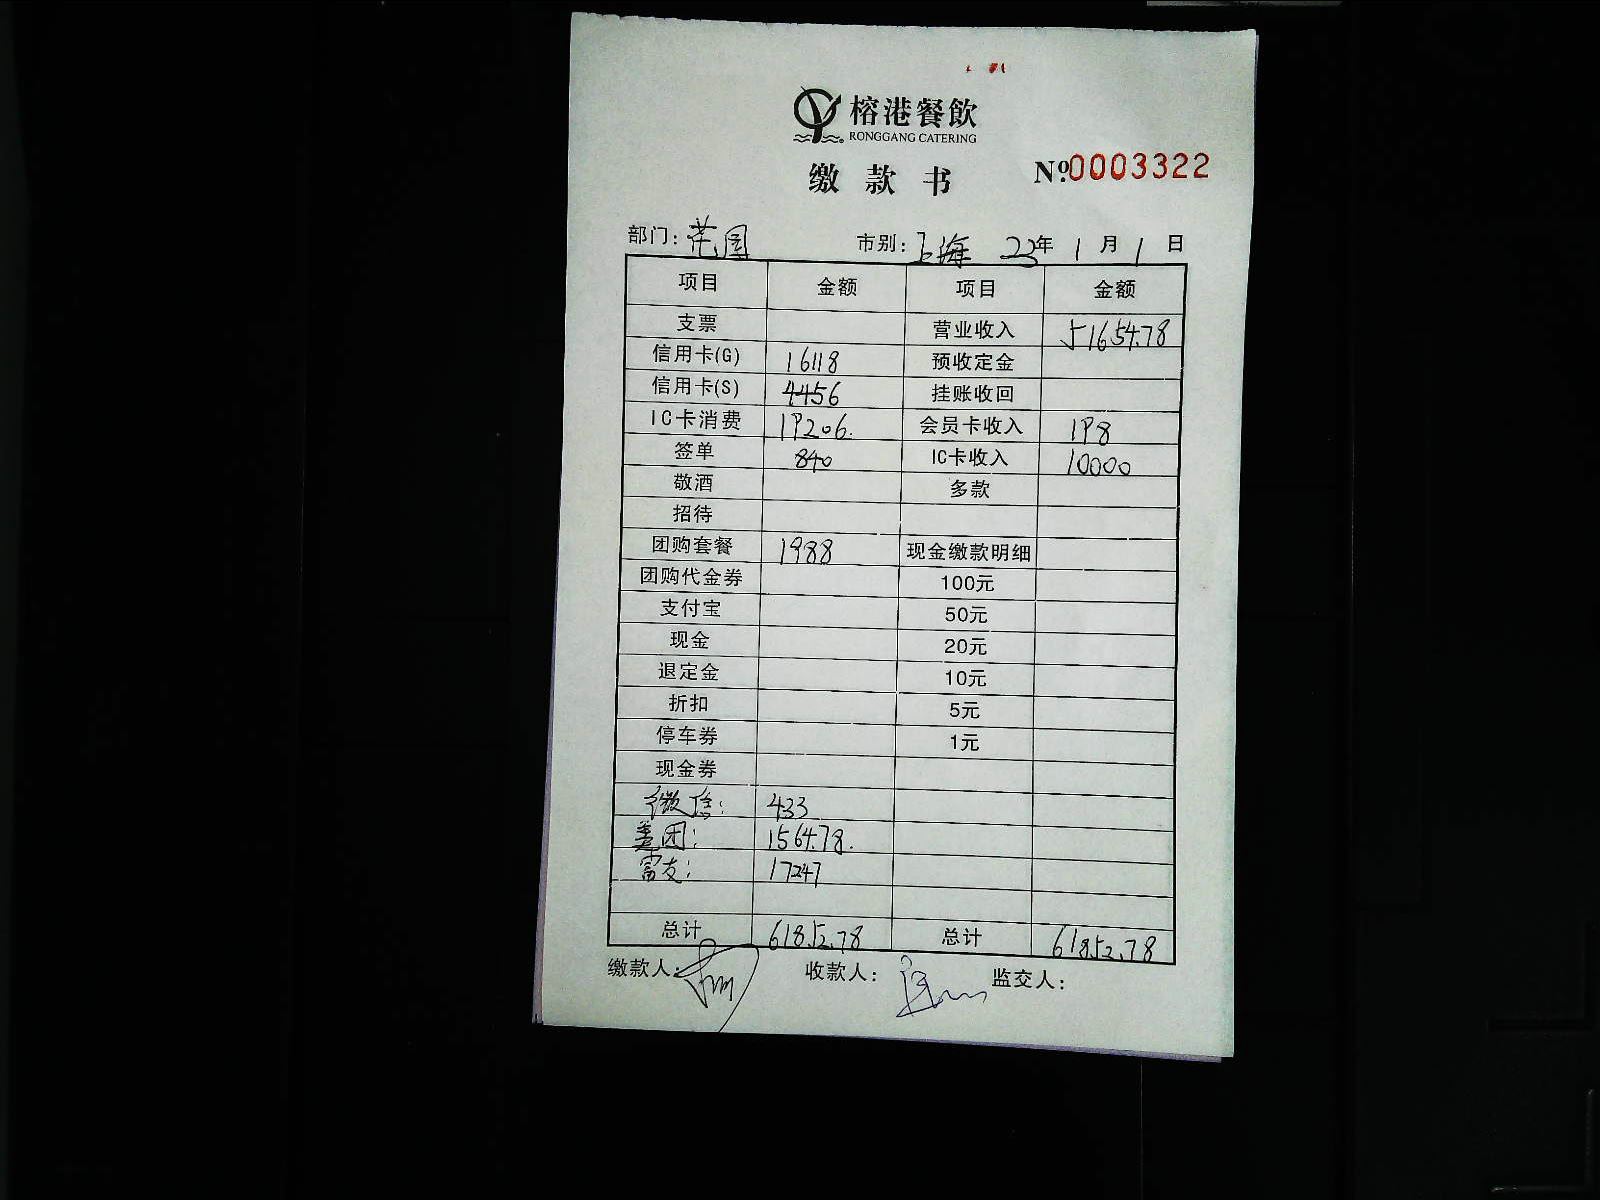 榕港餐飲
RONGGANG CATERING
缴款书 Nº.0003322
部门： 市别：上海 23年1月1日
项目 金额 项目 金额
支票 营业收入 51654.78
信用卡(G) 16118 预收定金
信用卡(S) 4456 挂账收回
IC卡消费 19206. 会员卡收入 198
签单 840 IC卡收入 10000
敬酒 多款
招待
团购套餐 1988 现金缴款明细
团购代金券 100元
支付宝 50元
现金 20元
退定金 10元
折扣 5元
停车券 1元
现金券
微信： 433
美团： 1564.78.
富友： 17247
总计 61852.78 总计 61852.78
缴款人： 收款人： 监交人：